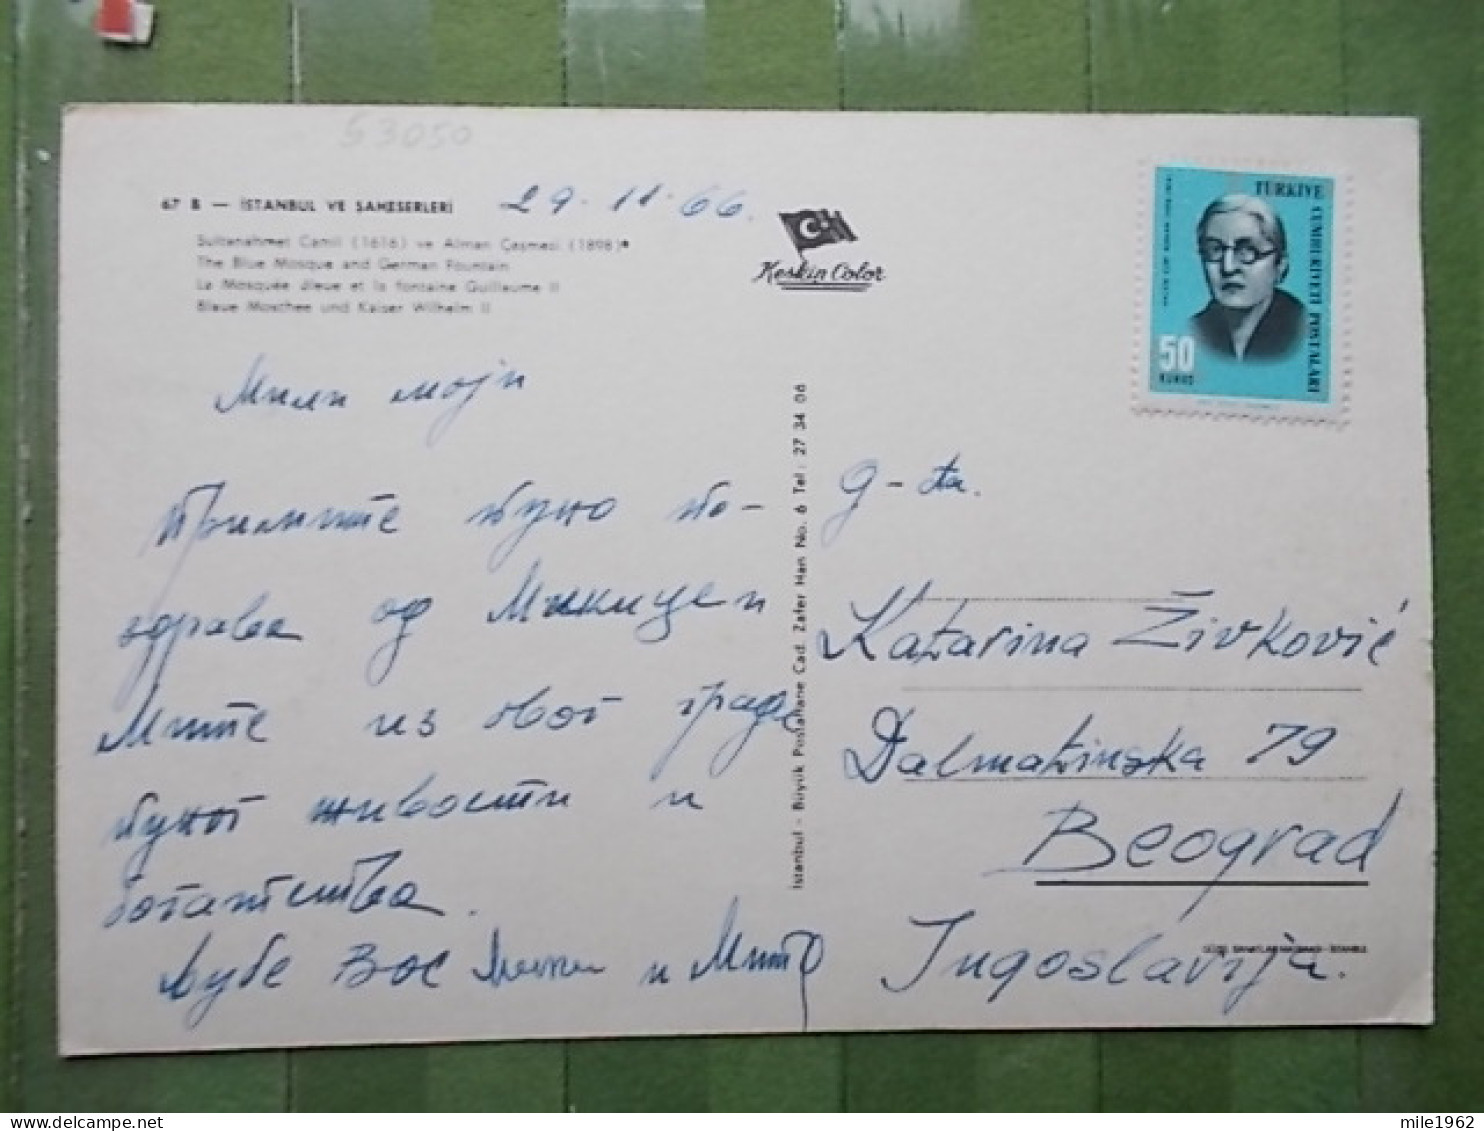 53050
67 B — İSTANBUL VE ŞAHESERLERİ
29. 11. 66.
Sultanahmet Camii (1616) ve Alman Çeşmesi (1898)
The Blue Mosque and German Fountain
La Mosquée Bleue et la fontaine Guillaume II
Blaue Moschee und Kaiser Wilhelm II
Keskin Color
TÜRKİYE CUMHURİYETİ POSTALARI
50
KURUŞ
Мили моји
Примите пуно по-
здрава од Микице и
Мите из овог града
пуног живости и
богатства.
Љубе Вас и Мита
İstanbul - Büyük Postahane Cad. Zafer Han No. 6 Tel: 27 34 06
g-đa.
Katarina Živković
Dalmatinska 79
Beograd
Jugoslavija.
mile1962